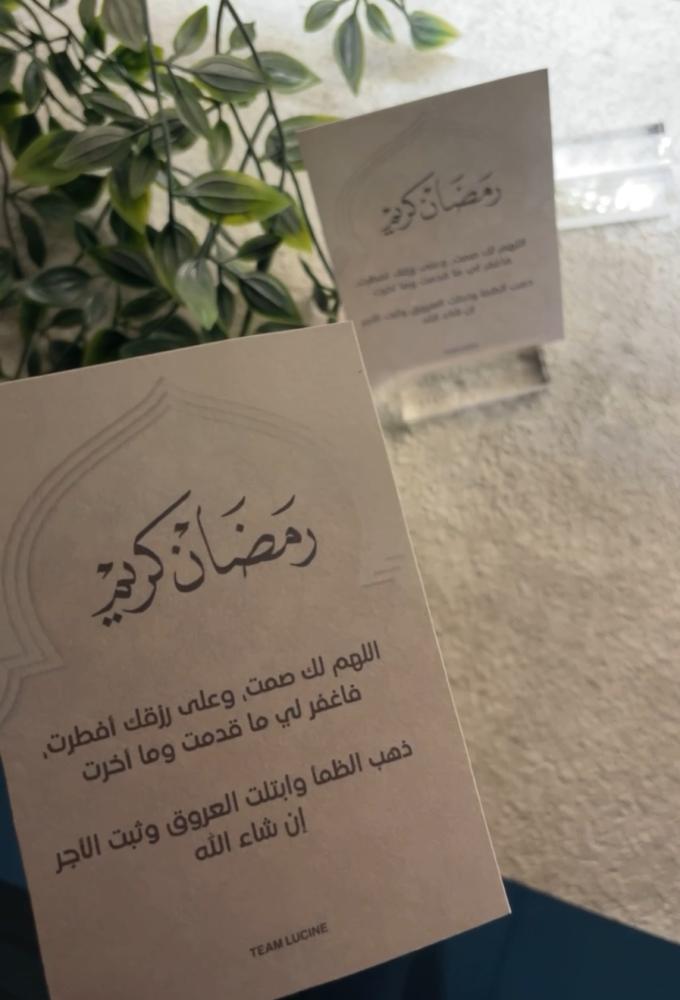 رمضان كريم
اللهم لك صمت، وعلى رزقك افطرت،
فاغفر لي ما قدمت وما اخرت
ذهب الظما وابتلت العروق وثبت الاجر
إن شاء الله
TEAM LUCINE
رمضان كريم
اللهم لك صمت، وعلى رزقك افطرت،
فاغفر لي ما قدمت وما اخرت
ذهب الظما وابتلت العروق وثبت الاجر
إن شاء الله